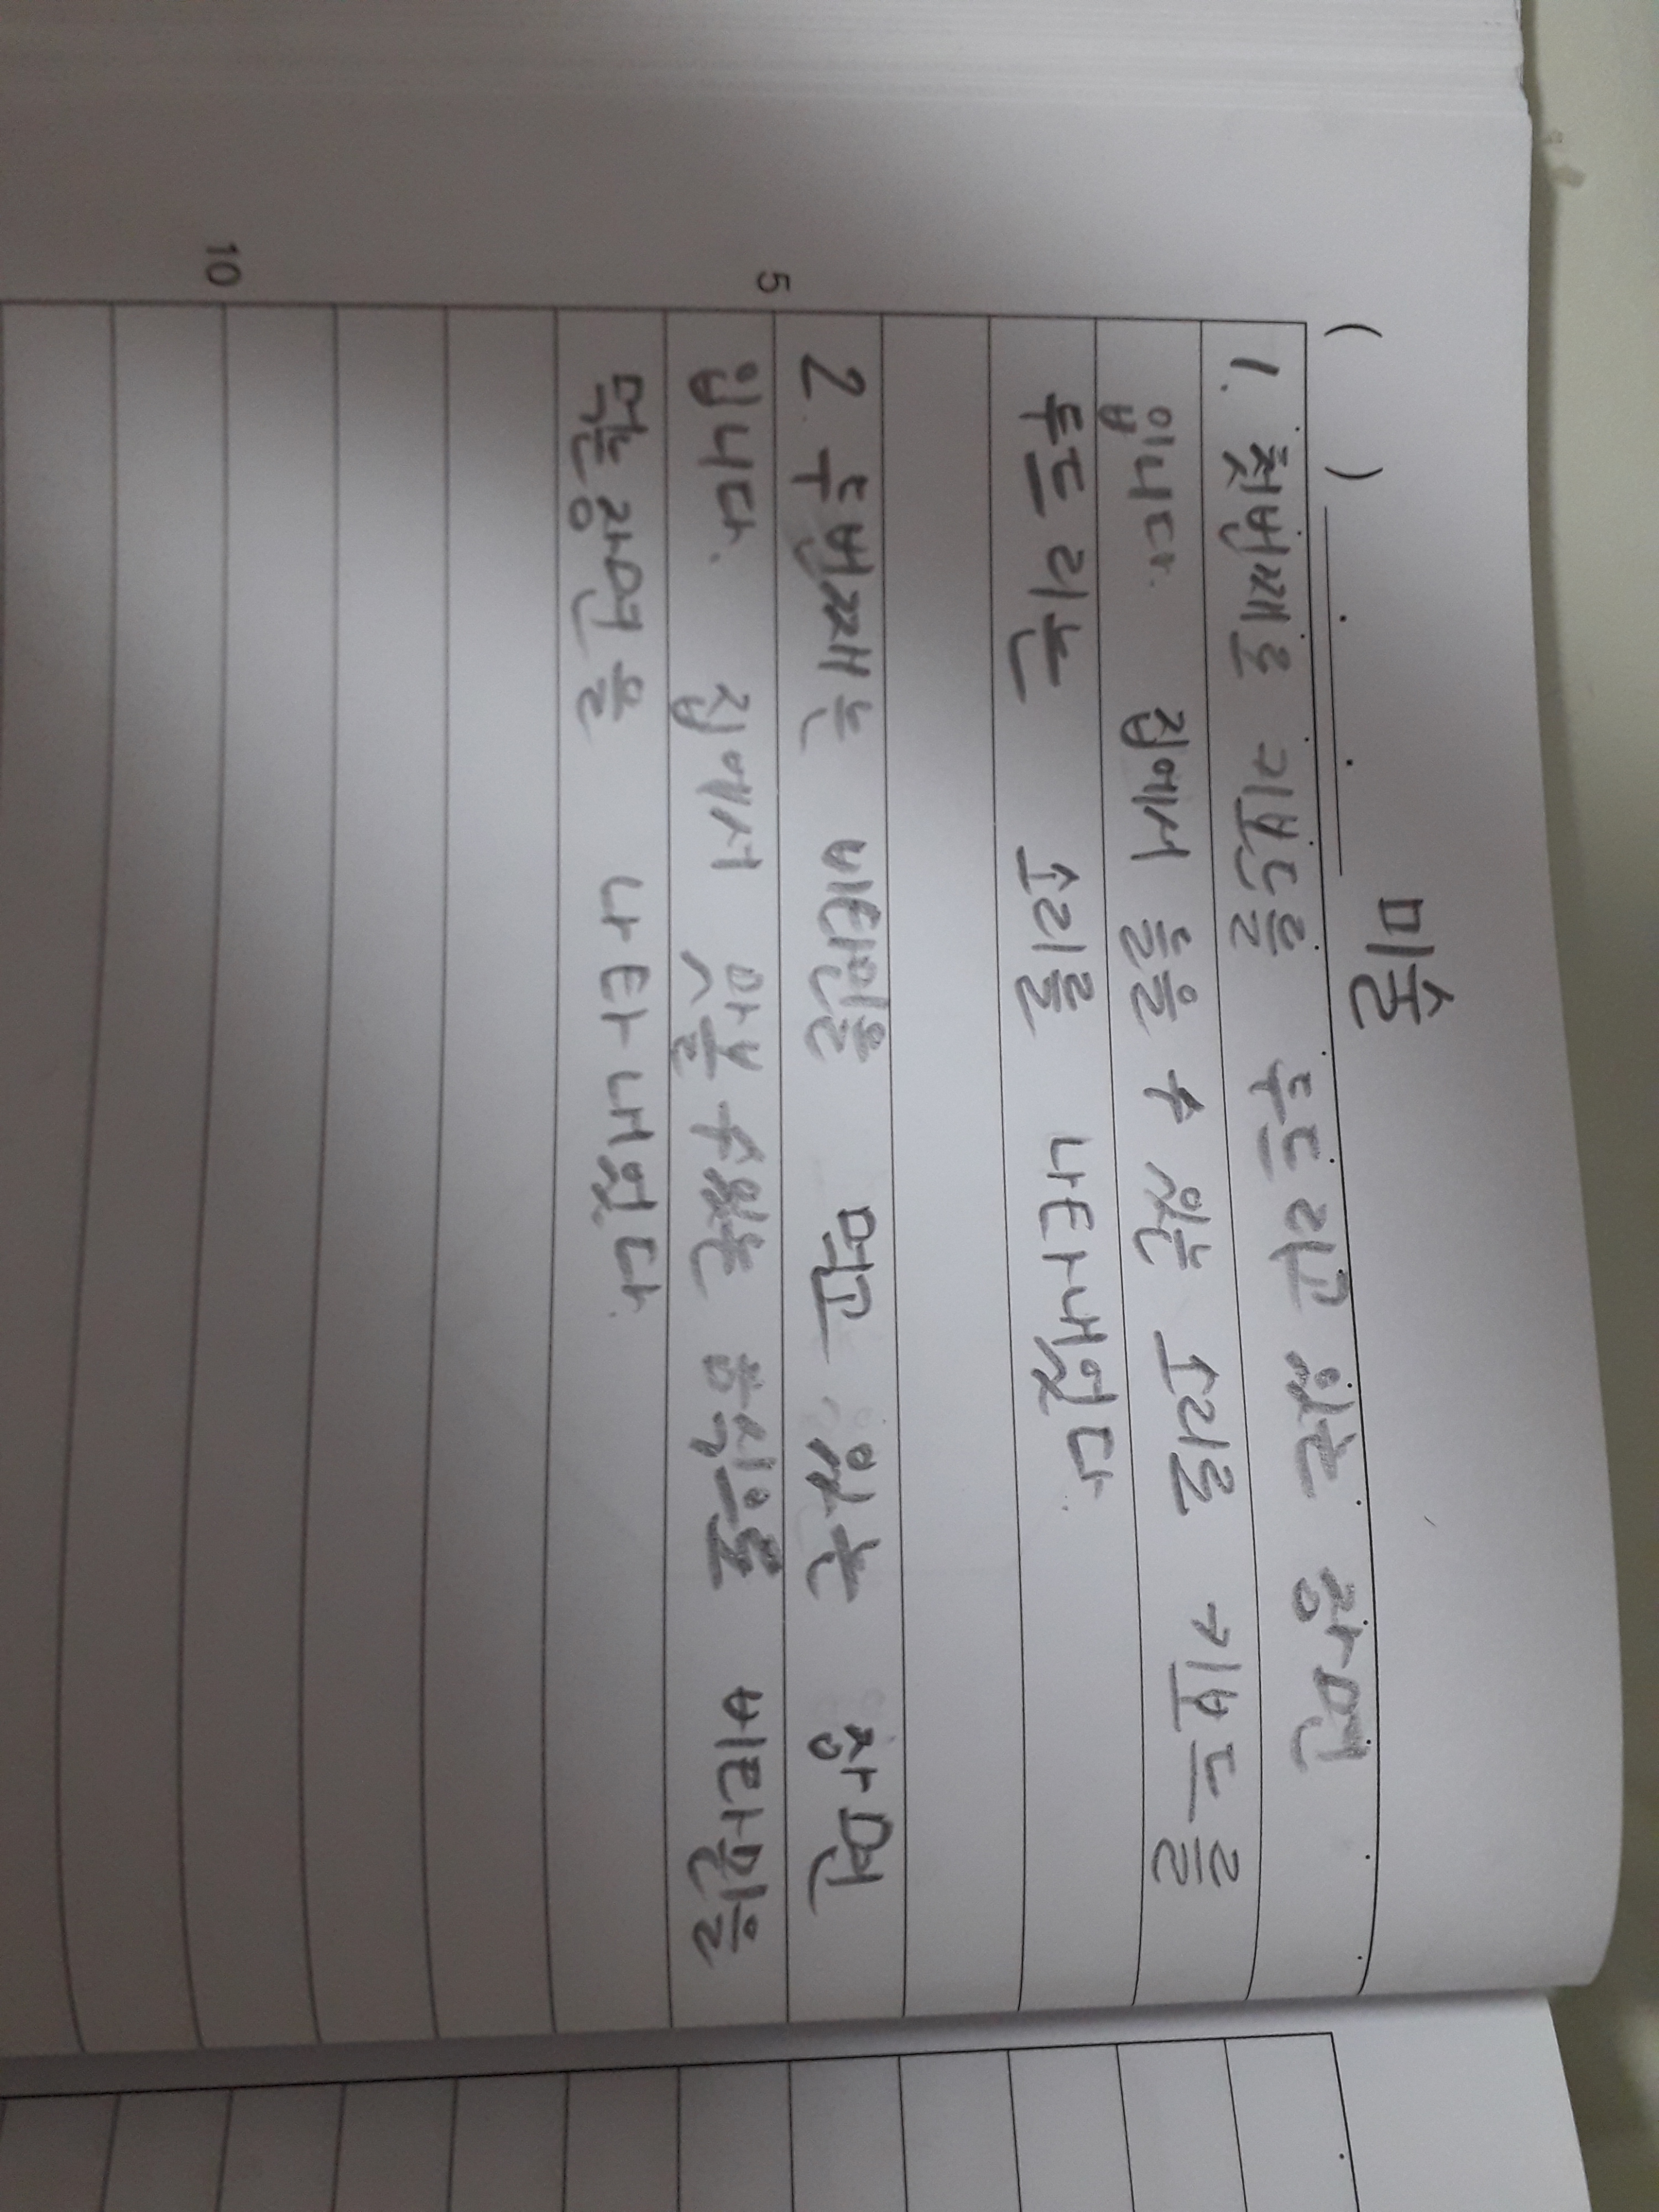 미술
( )
1. 첫번째로 키보드를 두드리고 있는 장면
입니다. 집에서 들을 수 있는 소리로 키보드를
두드리는 소리를 나타내었다.
5
2. 두번째는 비타민을 먹고 있는 장면
입니다. 집에서 맛볼 수 있는 음식으로 비타민을
먹는 장면을 나타내었다.
10